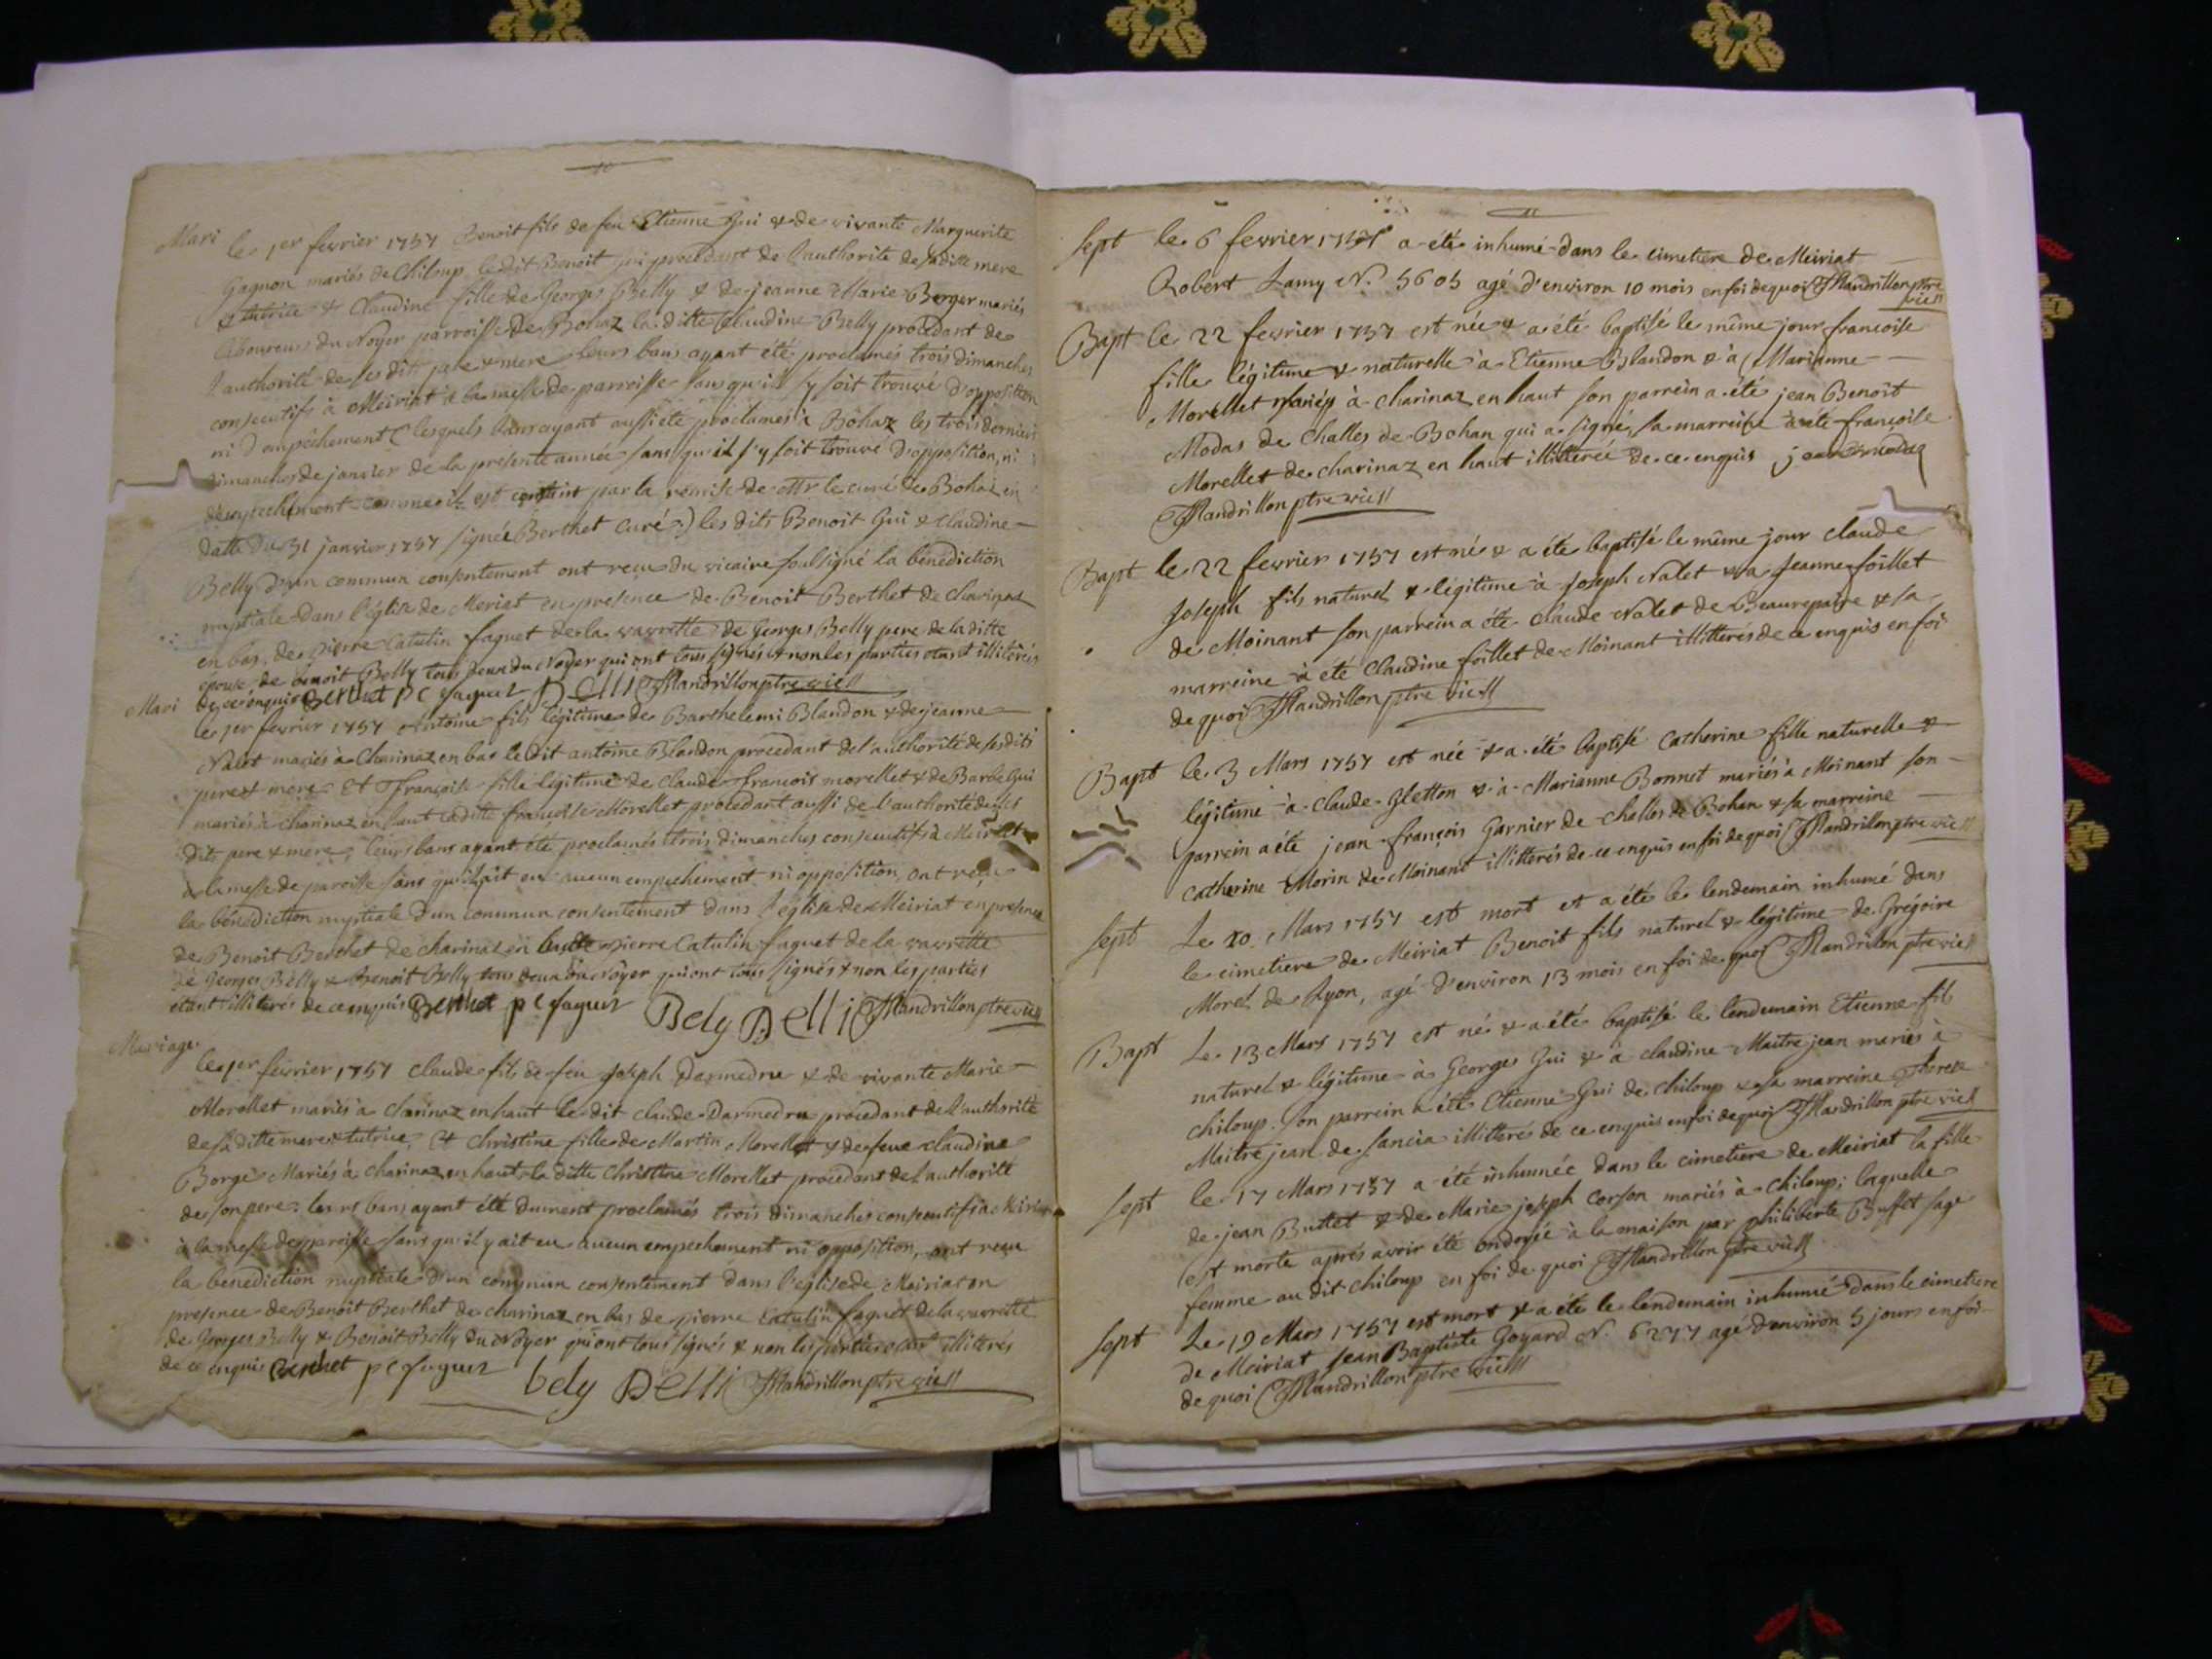 10
Mari le 1er fevrier 1757 Benoit fils de feu Etienne Gui & de vivante Marguerite
Gagnon mariés de Chiloup le dit Benoit Gui procedant de l'authorité de sa ditte mere
& tutrice & Claudine fille de Georges Belly & de jeanne Marie Borger mariés
laboureurs du Noyer parroisse de Bohaz la ditte Claudine Belly procedant de
l'authorité de ses dits pere & mere leurs bans ayant été proclamés trois dimanches
consecutifs à Meiriat à la messe de parroisse sans qu'il s'y soit trouvé d'opposition
ni d'empêchement (lesquels bans ayant aussi été proclamés à Bohaz les trois derniers
dimanches de janvier de la presente année sans qu'il s'y soit trouvé d'opposition, ni
d'empechement comme il est constaint par la remise de Mr le curé de Bohaz en
datte du 31 janvier 1757 signée Berthet Curé) les dits Benoit Gui & Claudine
Belly d'un commun consentement ont reçu du vicaire soussigné la bénédiction
nuptiale dans l'église de Meriat en presence de Benoit Berthet de charinaz
en bas, de pierre Catulin faguet de la vavrette de Georges Belly pere de la ditte
épouse, de Benoit Belly tous deux du Noyer qui ont tous signés & non les parties étant illitérés
de ce enquis Berthet p c faguet Belli Mandrillon ptre vic
Mari le 1er fevrier 1757 Antoine fils légitime de Barthelemi Blandon & de jeanne
Nalet mariés à Charinaz en bas le dit antoine Blandon procedant de l'authorité de ses dits
pere & mere Et Françoise fille légitime de Claude francois morellet & de Barbe Gui
mariés à charinaz en haut la ditte francoise Morellet procedant aussi de l'authorité de ses
dits pere & mere, leurs bans ayant été proclamés trois dimanches consecutifs à Meiriat
à la messe de paroisse sans qu'il y ait eu aucun empechement ni opposition, ont reçu
la bénédiction nuptiale d'un commun consentement dans l'église de Meiriat en presence
de Benoit Berthet de charinaz en bas de pierre Catulin faguet de la vavrette
de Georges Belly & Benoit Belly tous deux du Noyer qui ont tous signés & non les parties
étant illiterés de ce enquis Berthet p c faguet Bely Belli Mandrillon ptre vic
Mariage
le 1er fevrier 1757 Claude fils de feu Joseph Darmedru & de vivante Marie
Morellet mariés à charinaz en haut le dit Claude Darmedru procedant de l'authorité
de sa ditte mere & tutrice, & Christine fille de Martin Morellet & de feue claudine
Borge Mariés à charinaz en haut la ditte Christine Morellet procedant de l'authorité
de son pere: leurs bans ayant été dument proclamés trois dimanches consecutifs à Meiriat
à la messe de paroisse sans qu'il y ait eu aucun empechement ni opposition, ont reçu
la benediction nuptiale d'un commun consentement dans l'eglise de Meiriat en
presence de Benoit Berthet de charinaz en bas de pierre Catulin faguet de la vavrette
de Georges Belly & Benoit Belly du Noyer qui ont tous signés & non les parties étant illiterés
de ce enquis Berthet p c faguet bely Belli Mandrillon ptre vic
11
Sept le 6 fevrier 1757 a été inhumé dans le cimetiere de Meiriat
Robert Lamy N. 5605 agé d'environ 10 mois en foi de quoi Mandrillon ptre
vic
Bapt le 22 fevrier 1757 est née & a été baptisé le même jour francoise
fille légitime & naturelle à Etienne Blandon & à Marianne
Morellet mariés à charinaz en haut son parrein a été jean Benoît
Modas de Challes de Bohan qui a signé, sa marreine a été françoise
Morellet de charinaz en haut illitterée de ce enquis jean modas
Mandrillon ptre vic
Bapt le 22 fevrier 1757 est né & a été baptisé le même jour claude
Joseph fils naturel & légitime à Joseph Nalet & à Jeanne foillet
de Moinant son parrein a été Claude Nalet de Beaurepaire & sa
marreine à été Claudine foillet de Moinant illitterés de ce enquis en foi
de quoi Mandrillon ptre vic
Bapt le 3 Mars 1757 est née & a été baptisé Catherine fille naturelle &
légitime à Claude Gletton & à Marianne Bonnet mariés à Moinant son
parrein a été jean françois Garnier de challes de Bohan & sa marreine
catherine Morin de Moinant illitterés de ce enquis en foi de quoi Mandrillon ptre vic
Sept Le 10 Mars 1757 est mort et a été le lendemain inhumé dans
le cimetiere de Meiriat Benoit fils naturel & légitime de Grégoire
Morel de Lyon, agé d'environ 13 mois en foi de quoi Mandrillon ptre vic
Bapt Le 13 Mars 1757 est né & a été baptisé le lendemain Etienne fils
naturel & légitime à Georges Gui & à claudine Maitre jean mariés à
chiloup. son parrein a été Etienne Gui de chiloup & sa marreine Therese
Maitre jean de sancia illitterés de ce enquis en foi de quoi Mandrillon ptre vic
Sept le 17 Mars 1757 a été inhumée dans le cimetiere de Meiriat la fille
de jean Buttet & de Marie joseph corson mariés à chiloup; laquelle
est morte après avoir été ondoyée à la maison par philiberte Buffet sage
femme au dit chiloup en foi de quoi Mandrillon ptre vic
Sept Le 19 Mars 1757 est mort & a été le lendemain inhumé dans le cimetiere
de Meiriat Jean Baptiste Goyard N. 6277 agé d'environ 5 jours en foi
de quoi Mandrillon ptre vic